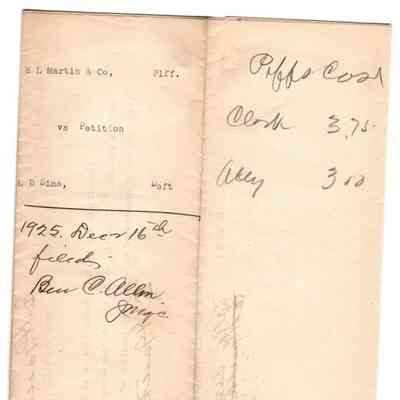 H L Martin & Co, Plff.
vs Petition
E D Sims, Deft
1925. Decr 16th
filed;
Ben C. Allin
Plffs Cost
Clerk 3.75
Atty 3 00